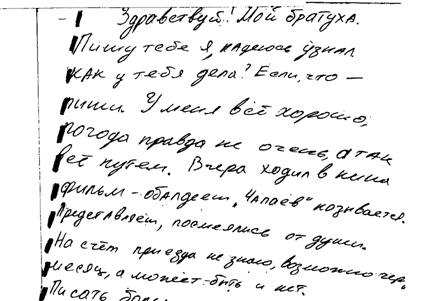 - Здравствуй! Мой братуха.
Пишу тебе я, надеюсь узнал
как у тебя дела? Если, что –
пиши. У меня всё хорошо,
погода правда не очень, а так
всё путем. Вчера ходил в кино
фильм – обалдееш, "Чапаев" називается.
Представляеш, посмеялись от души.
На счёт приезда не знаю, возможно чер.
месяц, а может быть и нет.
Писать